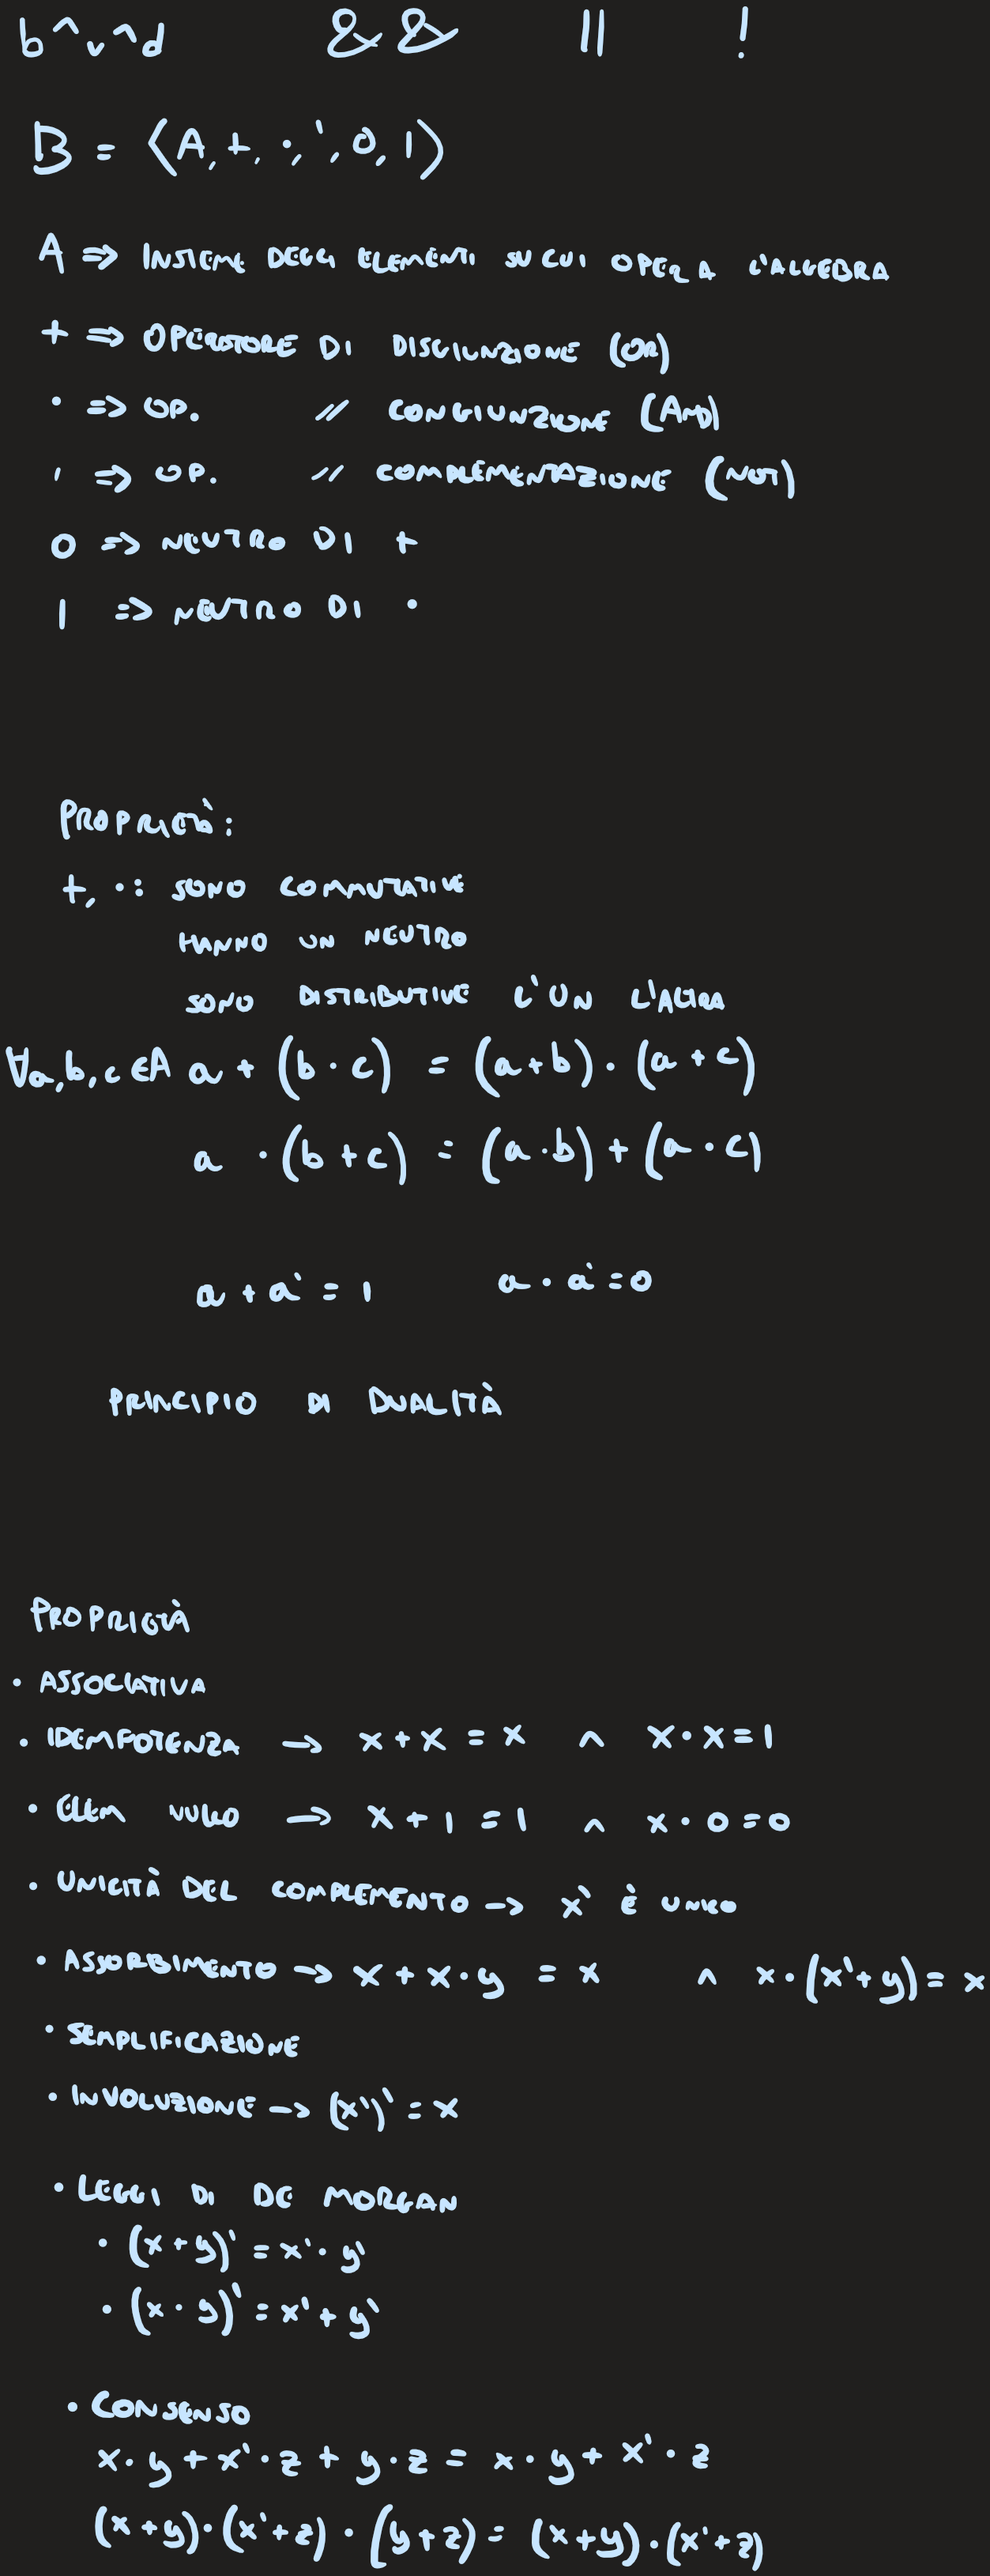 b^v^d && || !
B = ⟨A, +, ·, ', 0, 1⟩
A => INSIEME DEGLI ELEMENTI SU CUI OPERA L'ALGEBRA
+ => OPERATORE DI DISGIUNZIONE (OR)
· => OP. // CONGIUNZIONE (AND)
' => OP. // COMPLEMENTAZIONE (NOT)
0 => NEUTRO DI +
1 => NEUTRO DI ·
PROPRIETÀ:
+, ·: SONO COMMUTATIVE
HANNO UN NEUTRO
SONO DISTRIBUTIVE L'UN L'ALTRA
∀a,b,c∈A a + (b · c) = (a+b) · (a + c)
a · (b + c) = (a·b) + (a · c)
a + a' = 1 a · a' = 0
PRINCIPIO DI DUALITÀ
PROPRIETÀ
· ASSOCIATIVA
· IDEMPOTENZA -> x + x = x ^ x · x = 1
· ELEM NULLO -> x + 1 = 1 ^ x · 0 = 0
· UNICITÀ DEL COMPLEMENTO -> x' È UNICO
· ASSORBIMENTO -> x + x · y = x ^ x · (x' + y) = x
· SEMPLIFICAZIONE
· INVOLUZIONE -> (x')' = x
· LEGGI DI DE MORGAN
· (x + y)' = x' · y'
· (x · y)' = x' + y'
· CONSENSO
x · y + x' · z + y · z = x · y + x' · z
(x + y) · (x' + z) · (y + z) = (x + y) · (x' + z)